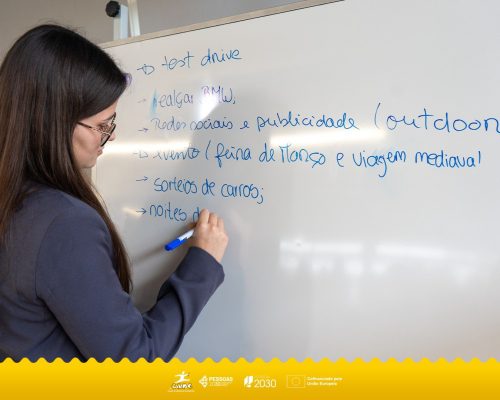 → test drive
→ realçar BMW;
→ Redes sociais e publicidade (outdoon
→ evento (feira de Março e viagem mediaval
→ sorteios de carros;
→ noites d
PESSOAS
2030
Cofinanciado pela
União Europeia